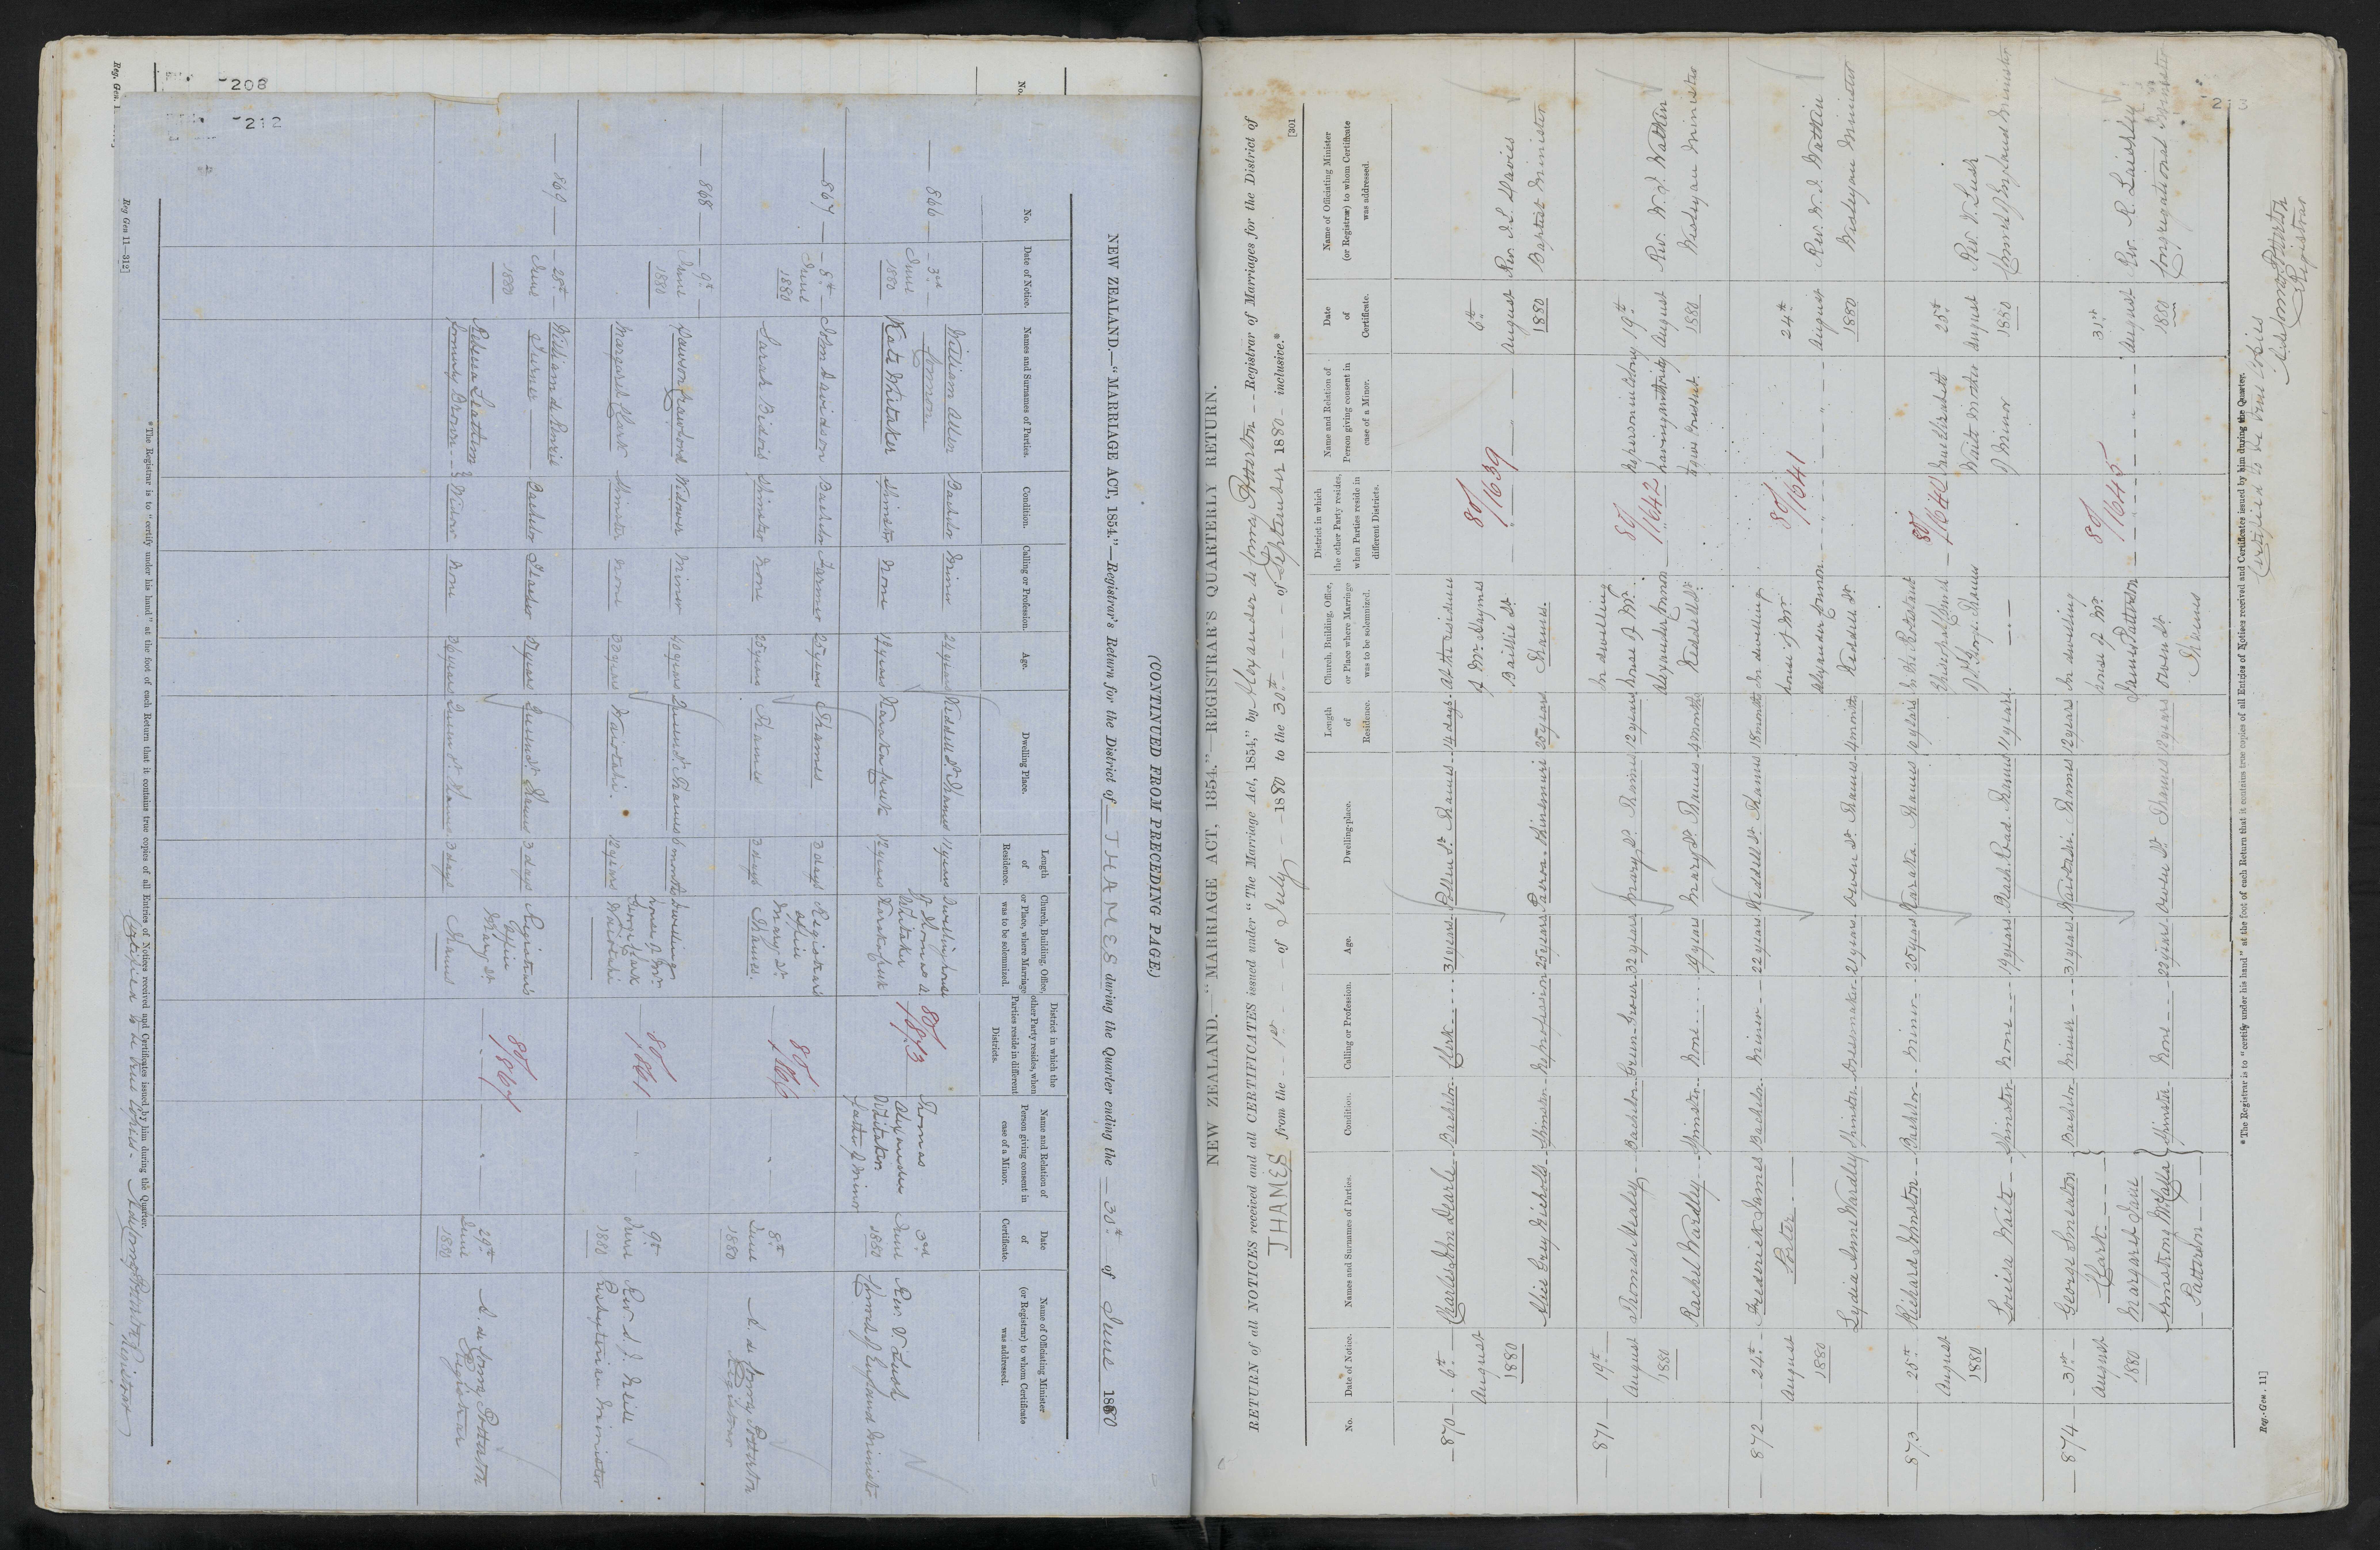 208
No.
Reg. Gen. 1
212
(CONTINUED FROM PRECEDING PAGE.)
NEW ZEALAND.—"MARRIAGE ACT, 1854."—Registrar's Return for the District of THAMES during the Quarter ending the 30th of June 1880
No.
Date of Notice.
Names and Surnames of Parties.
Condition.
Calling or Profession.
Age.
Dwelling Place.
Length of Residence.
Church, Building, Office, or Place, where Marriage was to be solemnized.
District in which the other Party resides, when Parties reside in different Districts.
Name and Relation of Person giving consent in case of a Minor.
Date of Certificate.
Name of Officiating Minister (or Registrar) to whom Certificate was addressed.
866 3rd June 1880
William Allen Bachelor Miner 24 years Keddell St Thames 11 years
Kate Whitaker Spinster None 18 years Karakapuk 12 years
Dwelling house of Thomas A. Whitaker
80/1873
Thomas Alexander Whitaker father of Minor
3rd June 1880
Rev. V. Lush Church of England Minister
867 8th June 1880
John Davidson Bachelor Farmer 25 years Thames 3 days
Sarah Bidois Spinster None 25 years Thames 3 days
Registrar's Office Mary St Thames.
80/1866
8th June 1880
A. de Lomeg Potterton Registrar
868 9th June 1880
Dawson Crawford Widower Miner 40 years Queen St. Thames 6 months
Margaret Clark Spinster None 30 years Waiotahi. 12 years
Dwelling house of Mr. George Clark Waiotahi
80/1861
9th June 1880
Rev. S. J. Neill Presbyterian Minister
869 28th June 1880
William de Renzie Turner Bachelor Teacher 37 years Queen St. Thames 3 days
Rebecca Leathem formerly Brown Widow None 36 years Queen St Thames 3 days
Registrar's Office Mary St. Thames
80/1867
29th June 1880
A. de Lomeg Potterton Registrar
* The Registrar is to "certify under his hand" at the foot of each Return that it contains true copies of all Entries of Notices received and Certificates issued by him during the Quarter.
Certified to be true copies.
Reg Gen 11—312]
NEW ZEALAND.—"MARRIAGE ACT, 1854."—REGISTRAR'S QUARTERLY RETURN.
RETURN of all NOTICES received and all CERTIFICATES issued under "The Marriage Act, 1854," by Alexander de Lomeg Potterton Registrar of Marriages for the District of
THAMES from the 1st of July 1880 to the 30th of September 1880 inclusive.*
[301
No.
Date of Notice.
Names and Surnames of Parties.
Condition.
Calling or Profession.
Age.
Dwelling-place.
Length of Residence.
Church, Building, Office, or Place where Marriage was to be solemnized.
District in which the other Party resides, when Parties reside in different Districts.
Name and Relation of Person giving consent in case of a Minor.
Date of Certificate.
Name of Officiating Minister (or Registrar) to whom Certificate was addressed.
870 6th August 1880
Charles John Dearle Bachelor Clerk 31 years Pollen St. Thames 14 days
Alice Grey Nicholls Spinster No profession 25 years Paeroa Ohinemuri 25 years
At the residence of Mr. Haymes Baillie St Thames
80/1639
6th August 1880
Rev. Davies Baptist Minister
871 19th August 1880
Thomas Healey Bachelor Green Grocer 32 years Mary St. Thames 12 years
Rachel Wardley Spinster None 19 years Mary St. Thames 4 months
In dwelling house of Mr. Alexander Lennon Keddell St.
80/1642
No person in Colony having authority to give consent.
19th August 1880
Rev. W. J. Watkin Wesleyan Minister
872 24th August 1880
Frederick James Porter Bachelor Miner 22 years Keddell St. Thames 18 months
Lydia Anne Wardley Spinster Dressmaker 21 years Owen St. Thames 4 months
In dwelling house of Mr. Alexander Lennon Keddell St.
80/1641
24th August 1880
Rev. W. J. Watkin Wesleyan Minister
873 25th August 1880
Richard Johnston Bachelor Miner 25 years Karaka. Thames 10 years
Louisa Waite Spinster None 19 years Beach Road. Thames 11 years
In the Protestant Episcopal Church of St. George Thames
80/1640
Waite Mother of Minor
25th August 1880
Rev. V. Lush Church of England Minister
874 31st August 1880
George Smeaton Clark Bachelor Miner 31 years Waiotahi. Thames 12 years
Margaret Jane Armstrong McCalla Patterson Spinster None 22 years Owen St. Thames 12 years
In dwelling house of Mr. James Patterson Owen St. Thames
80/1645
31st August 1880
Rev. R. Laishley Congregational Minister
* The Registrar is to "certify under his hand" at the foot of each Return that it contains true copies of all Entries of Notices received and Certificates issued by him during the Quarter.
Certified to be true copies
A. de Lomeg Potterton
Registrar
Reg.-Gen. 11]